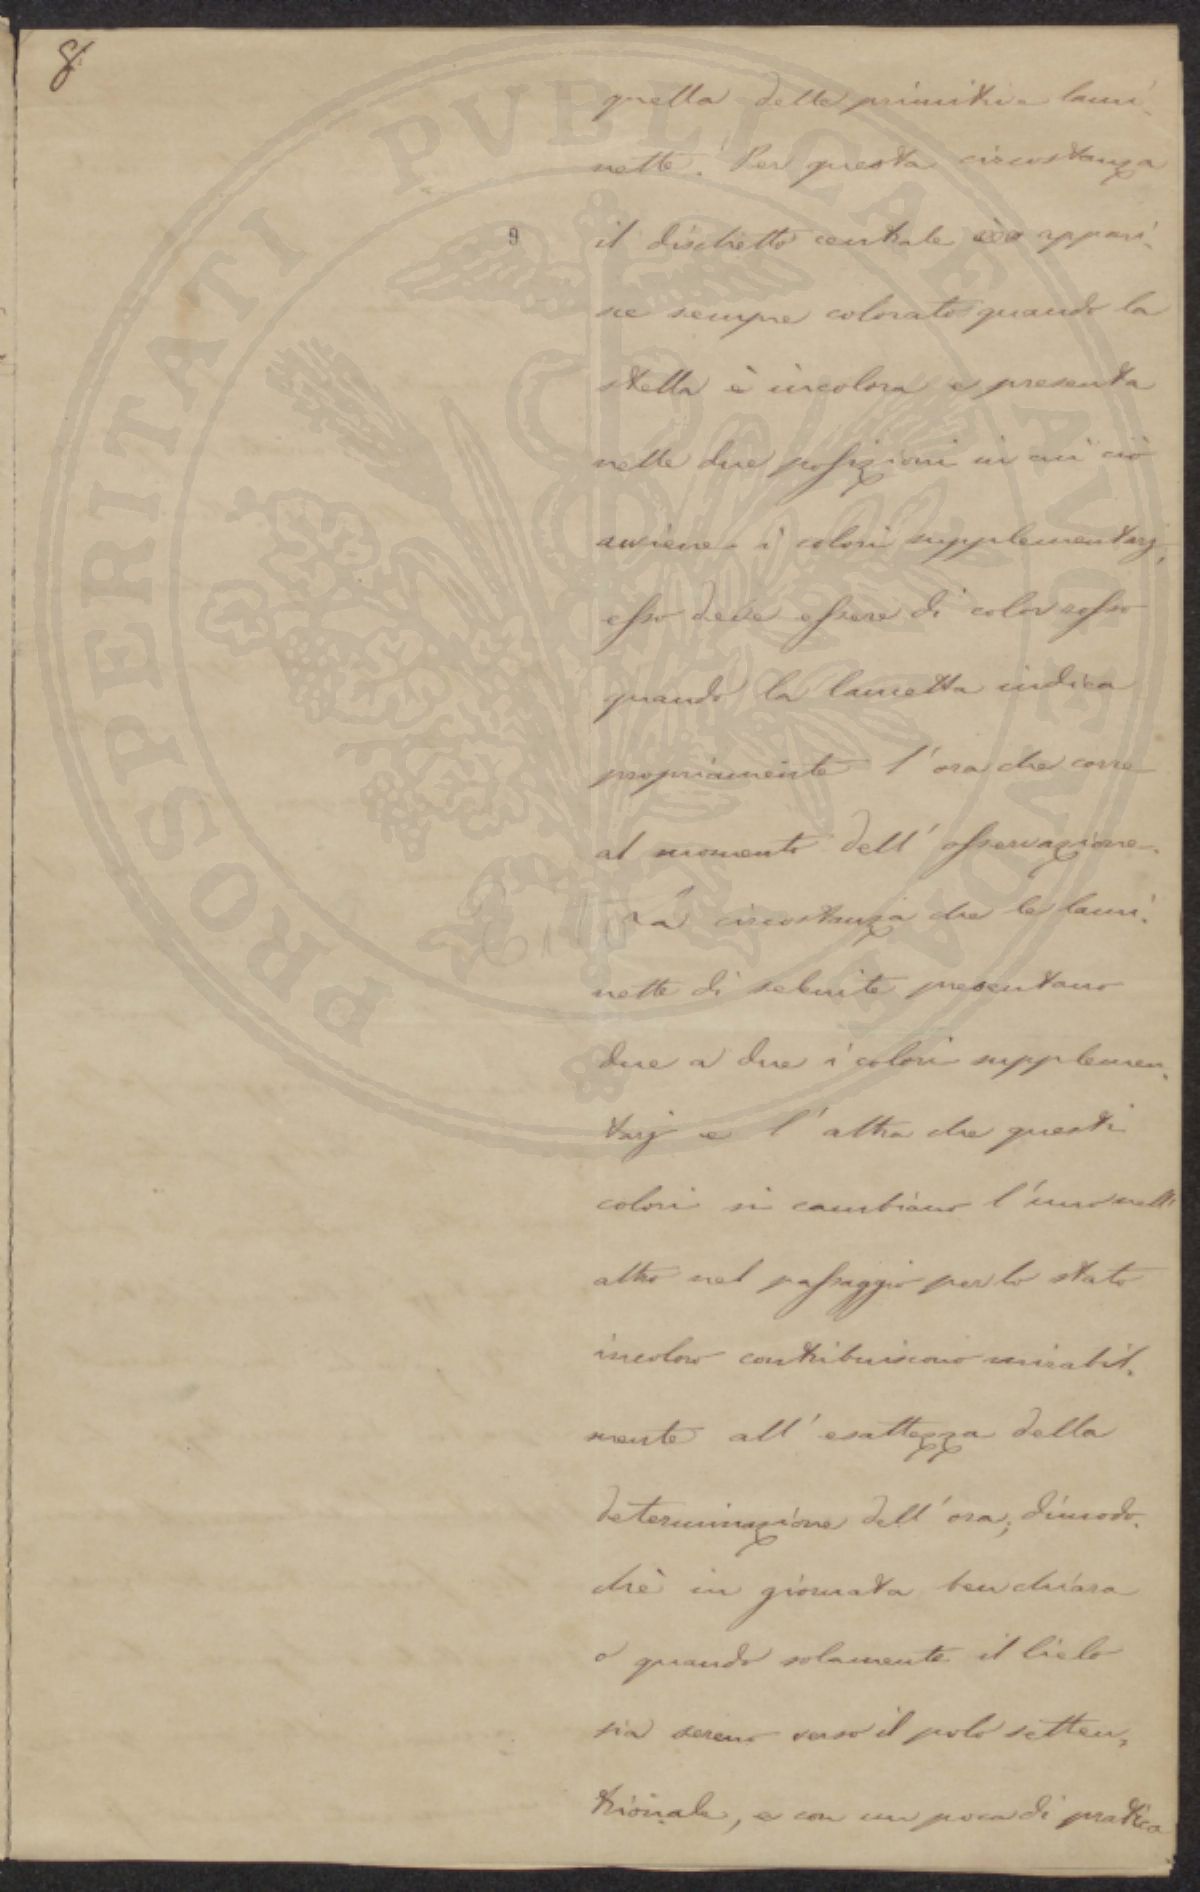 8
quella delle primitive lami-
nette. Per questa circostanza
9 il dischetto centrale appari-
sce sempre colorato quando la
stella è incolora e presenta
nelle due posizioni in cui ciò
avviene i colori supplementarj,
esso deve essere di color rosso
quando la lancetta indica
propriamente l'ora che corre
al momento dell'osservazione.
La circostanza che le lami-
nette di selenite presentano
due a due i colori supplemen-
tarj e l'altra che questi
colori si cambiano l'uno nell'
altro nel passaggio per lo stato
incoloro contribuiscono mirabil-
mente all'esattezza della
determinazione dell'ora; dimodo-
chè in giornata ben chiara
o quando solamente il Cielo
sia sereno verso il polo setten-
trionale, e con un poca di pratica
PROSPERITATI PVBLICAE AVGENDAE